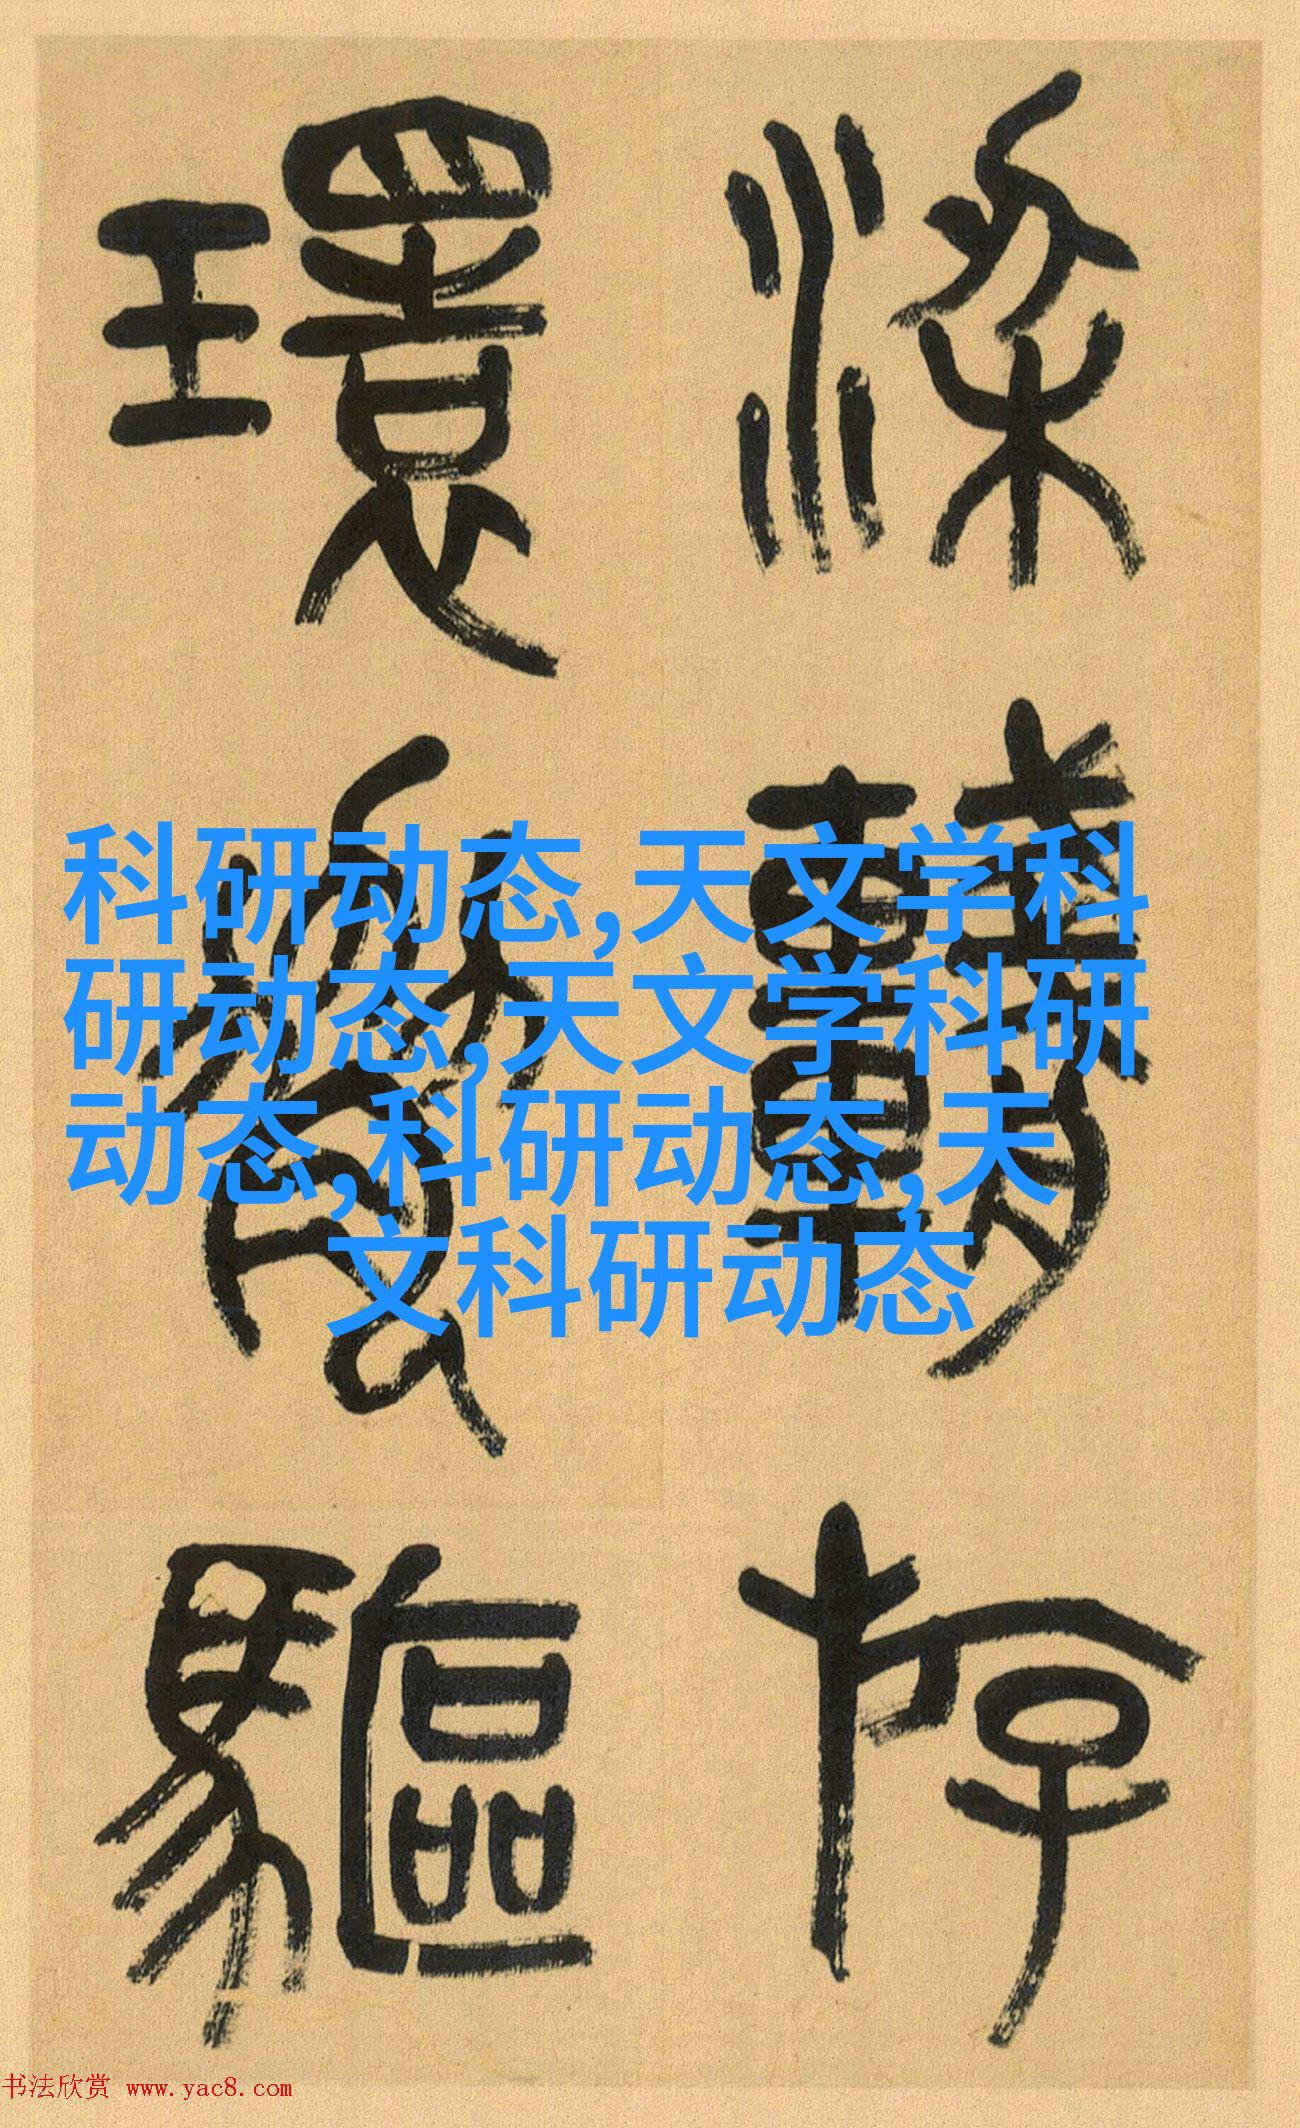 科研动态,天文学科
研动态,天文学科研
动态,科研动态,天
文科研动态
存
環
驅
书法欣赏 www.yac8.com